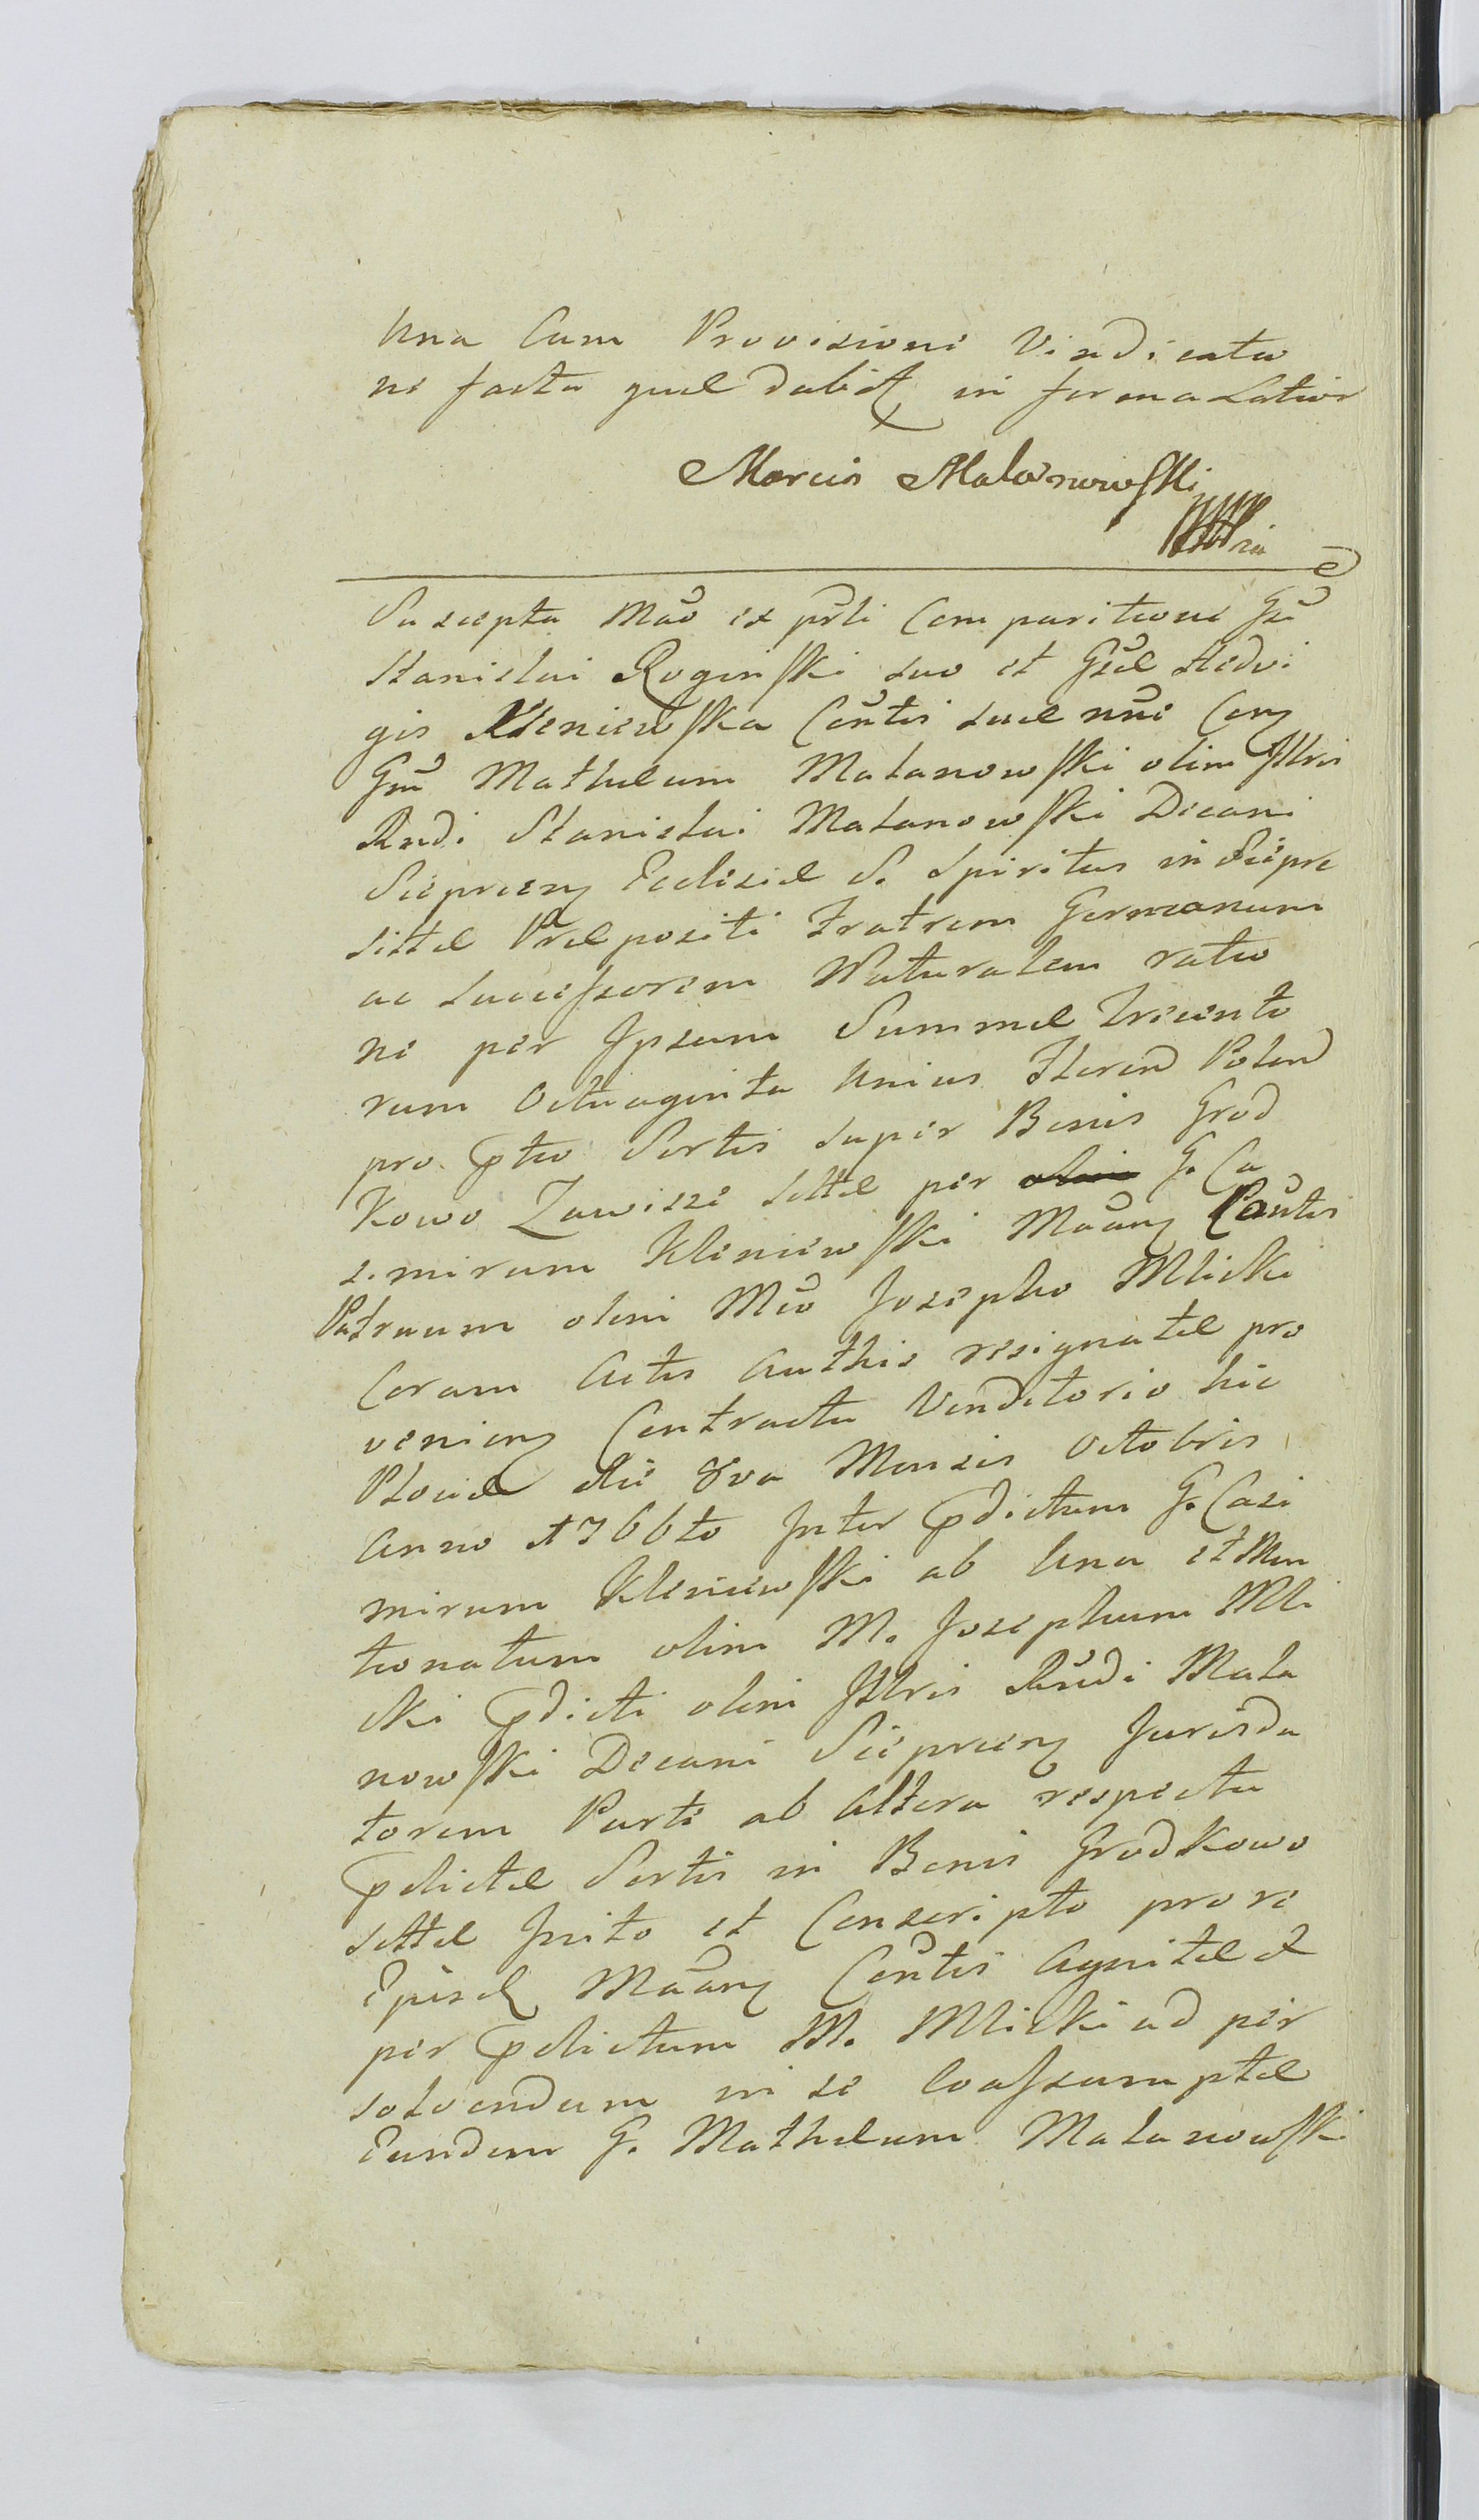 Una Cum Provisione Vindicatio
ne facta quæ dabit in forma Latior
Marcin Malanowski
Suscepta Mão ex prli Comparitione Gsi
Stanislai Roginski suo et Gsæ Hedvi
gis Kleniewska Cõntis suæ nõie Conz
Gsũ Mathæum Malanowski olim Jllris
Rndi Stanislai Malanowski Decani
Sieprcenz Ecclesiæ S. Spiritus in Sierpc
sittæ Præpositi Fratrem Germanum
ac Successorem Naturalem ratio
ne per Ipsum Summæ Trecento
rum Octuaginta Unius Floren Polon
pro ptio Sortis super Bonis Grod
Kowo Zawisze sittæ per G. Ca
simirum Kleniewski Mãanz Cõntis
Patruum olim Mco Josepho Mlicki
Coram Actis Authis resignatæ pro
venienz Contractu Venditorio hic
Plociæ die 8va Mensis Octobris
Anno 1766to Inter pdictum G. Casi
mirum Kleniewski ab Una et Men
tionatum olim M. Josephum Mli
cki pdicti olim Jllris Rndi Mala
nowski Decani Sieprcenz Jurisda
torem Parte ab Altera respectu
pdictæ Sortis in Bonis Grodkowo
sittæ Inito et Conscripto pro re
Mãanz Cõntis Agnitæ et
per pdictum M. Mlicki ad per
solvendum in se Coassumptæ
Eundem G. Mathæum Malanowski